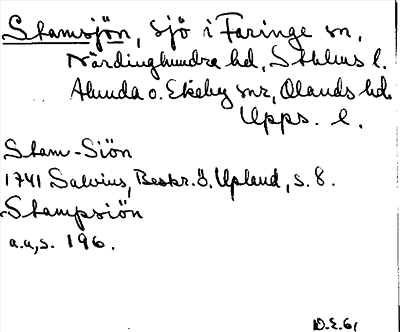 Stamsjön, sjö i Faringe sn,
Närdinghundra hd, Sthlms l.
Alunda o. Ekeby snr, Olands hd.
Upps. l.
Stam-Siön
1741 Salvius, Beskr. ö. Upland, s. 8.
Stampsiön
a.a, s. 196.
D.E. 61